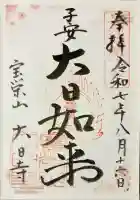 奉拝 令和七年八月十六日
大日如来
宝栄山
大日寺